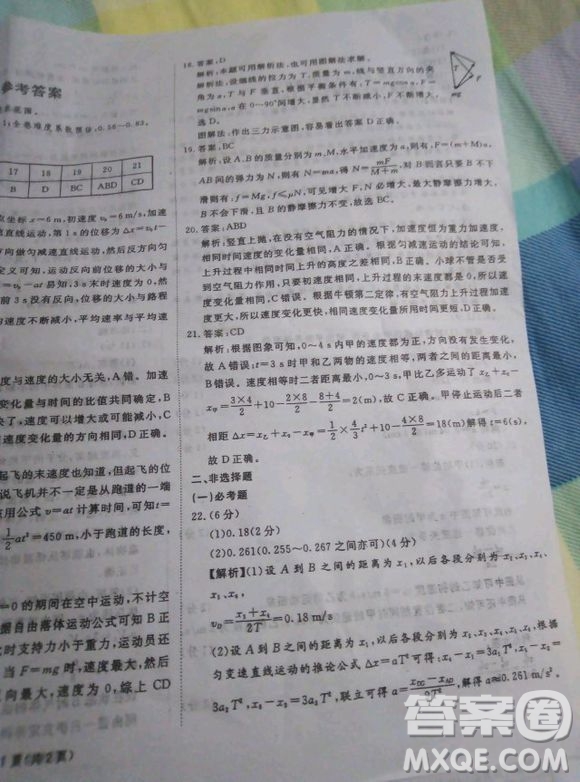 参考答案
1;全卷难度系数预估,0.56—0.83.
17 18 19 20 21
B D BC ABD CD
点坐标 x=6 m,初速度 v₀=6 m/s,加速
方向做匀减速直线运动,然后反方向匀
定义可知,运动反向前位移的大小与
=v₀-at 易知,3 s 末时速度为 0,然
1 s 内有反向,位移的大小与路程
的速度不断减小,平均速率与平均速
度与速度的大小无关,A 错。加速
变化量与时间的比值共同确定。
零开始,以后的速度可能减小或
速度变化量的方向相同,D 正确。
起飞的末速度也知道,但起飞的
说飞机并不一定是从跑道的一端
用公式 v=at 计算时间,可知 t=
½at²=450 m,小于跑道的长度,
=0 的期间在空中运动,不计空
根据自由落体运动公式可知 B 正
此时支持力小于重力,运动员还
当 F=mg 时,速度最大,然后
反向最大,速度为 0,综上 CD
1 页(共 2 页)
18. 答案:D
解析:本题可用解析法,也可用图解法求解。
解析法:设细线的拉力为 T,质量为 m,线与竖直方向的夹
角为 α,T 与 F 垂直,根据平衡条件有:T=mgcosα,F=
mgsinα,α 在 0~90°间增大,显然 T 不断减小,F 不断增大,
选 D。
图解法:作出三力示意图,容易看出答案 D 正确。
F
mg
19. 答案:BC
解析:设 A、B 的质量分别为 m、M,水平加速度为 a,则有,F=(m+M)a,
A、B 间的弹力与夹角无关,等于 N=mF/(M+m),对 B,竖直方向由于相对
滑则有:f=Mg,f≤μN,可见当 F 增大时,N 增大,最大静摩擦力增大,
但 B 的重力不变,B 的静摩擦力不变。故选 BC。
20. 答案:ABD
解析:竖直上抛,在没有空气阻力的情况下,加速度恒为重力加速度,
相同时间速度的变化量相同,A 正确。根据匀减速运动的结论可知,
上升过程中相同时间上升的高度之差都相同,B 正确。小球不管是否受
到空气阻力作用,只要到达最高点,则上升过程的末速度都为零,所以
速度变化量都相同,C 错误。根据牛顿第二定律,有空气阻力上升过程的
加速度变大,故上升时间变短,D 正确。
21. 答案:CD
解析:根据图象可知,0~4 s 内甲的速度为正,方向没有发生变化,
故 A 错误。t=3 s 时甲和乙两物的速度相等,两者之间的距离最小,
B 错误。速度相等时二者距离最小,0~3 s,甲比乙多运动了 x乙+x₀-
x甲=3×4/2+10-8×4/2-8+4/2=2(m),故 C 正确。甲停止运动后二者
相距 Δx=x乙+x₀-x甲=½×4/3 t²+10-4×8/2=18(m)解得 t=6(s),
故 D 正确。
二、非选择题
(一)必考题
22. (6 分)
(1)0.18(2 分)
(2)0.261(0.255~0.267 之间亦可)(4 分)
【解析】(1)设 A 到 B 之间的距离为 x₁,以后各段分别为 x₂、x₃、
x₄、x₅,
v_D=(x₃+x₄)/2T=0.18 m/s
(2)设 A 到 B 之间的距离为 x₁,以后各段分别为 x₂、x₃、x₄、x₅、x₆,根据
匀变速直线运动的推论公式 Δx=aT² 可得:x₄-x₁=3a₁T²,x₅-x₂=
3a₂T²,x₆-x₃=3a₃T²,联立可得 a=,解得 a≈0.261 m/s²。
答案圈
MXQE.COM